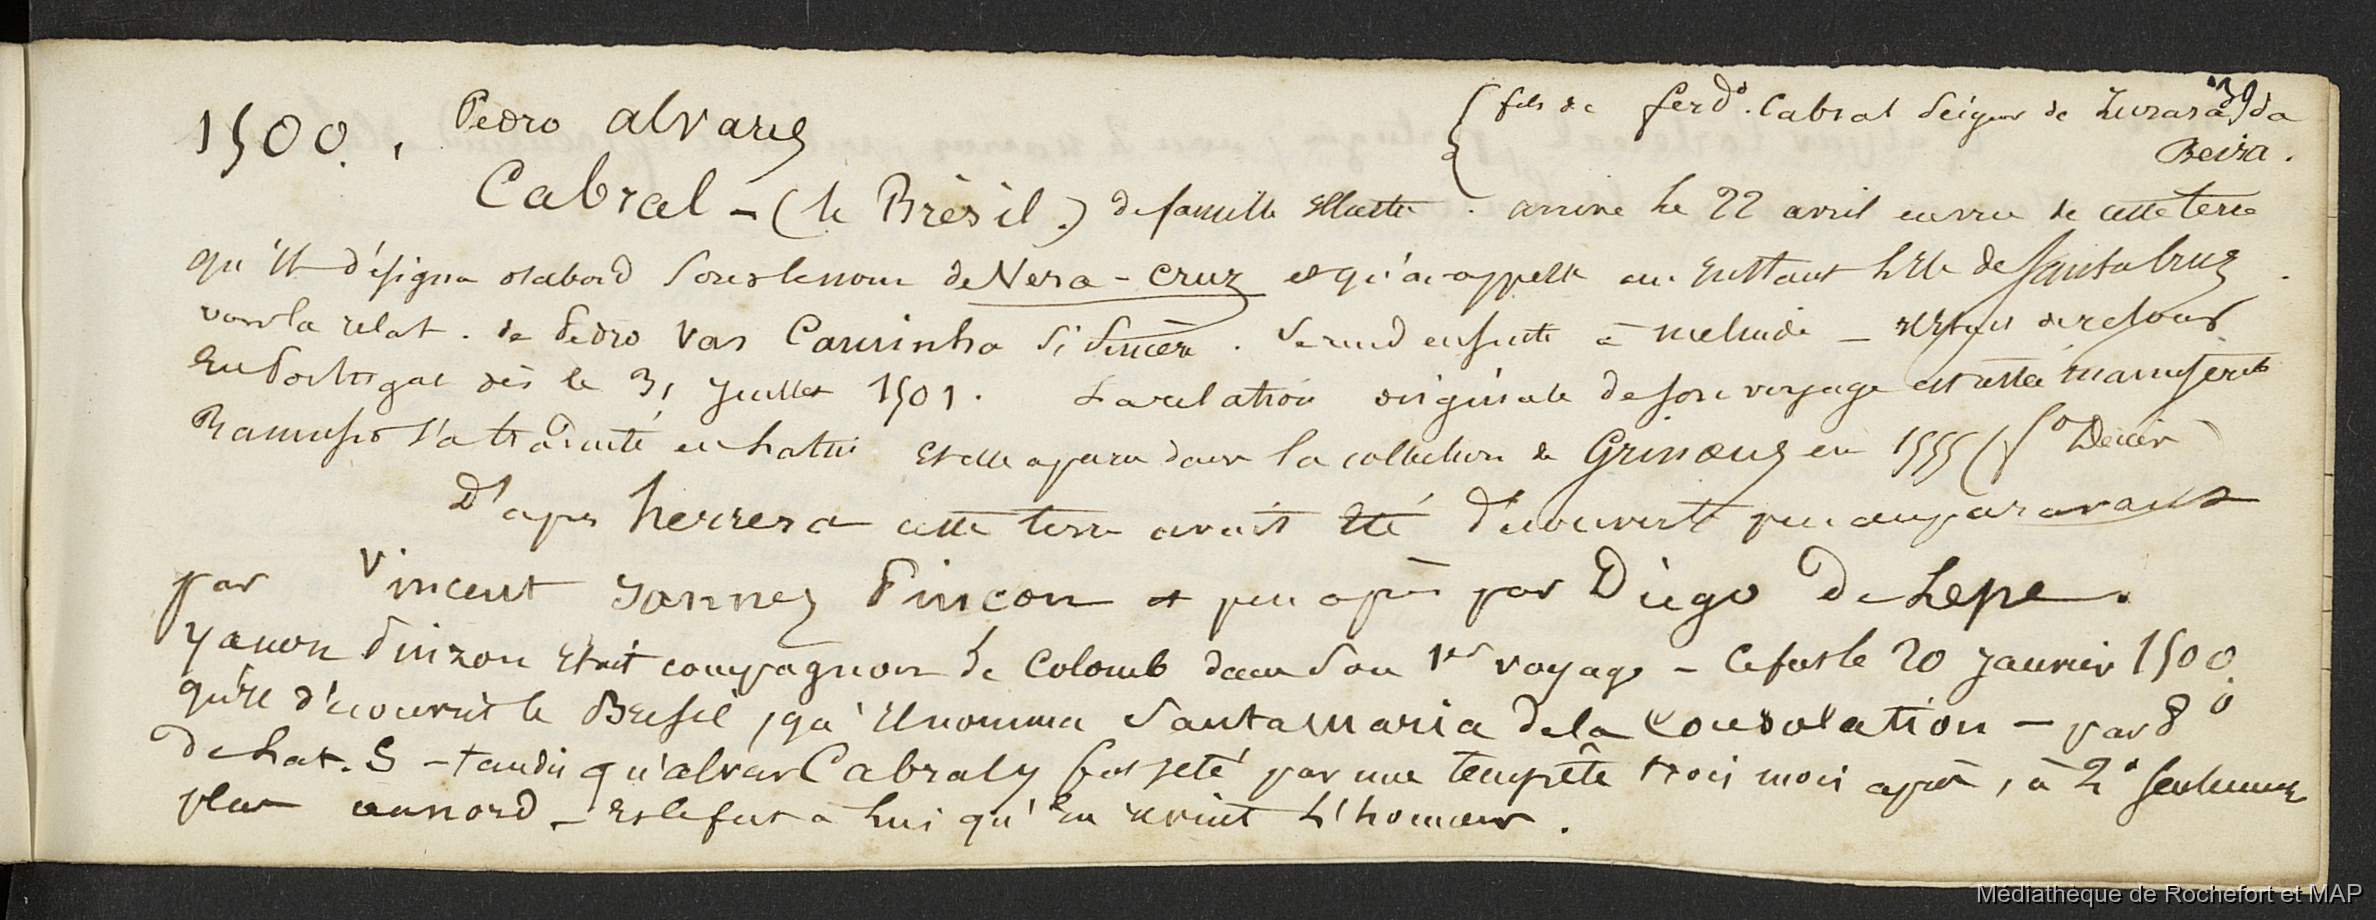 39
1500. Pedro alvarez
{ fils de ferd.º Cabral Seigneur de Zurara da
Beira.
Cabral – (le Brèsil.) de famille Illustre. arrive le 22 avril en vue de cette terre
qu'il désigna d'abord sous le nom de Vera-Cruz et qu'on appelle en Isle de Santa Cruz.
la relat. de Pedro Vas Caminha Si Sincère. Se rend ensuite à Melinde – Est de retour
En Portugal dès le 31 Juillet 1501. La relation originale de son voyage est restée manuscrite
Ramusio l'a traduite en latin Et elle a paru dans la collection de Grinoeus en 1555 (
D'après herrera cette terre avait Eté découverte peu auparavant
par Vincent Yannez Pinçon et peu après par Diego de Lepe.
Yanon Pinzon Etait compagnon de Colomb dans son 1er voyage – Ce fut le 20 Janvier 1500.
qu'il découvrit le Bresil, qu'il nomma Santa Maria de la Consolation – par 8º
de Lat. S – tandis qu'alvar Cabral y fut jeté par une tempête trois mois après, à 2º seulement
plus au nord – et ce fut à lui qu'en revint l'honneur.
Médiathèque de Rochefort et MAP